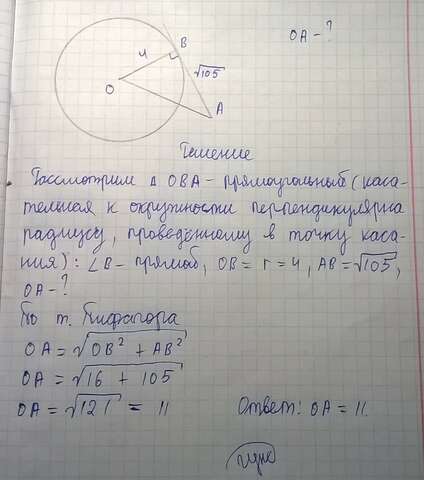 OA - ?
4
B
√105
O
A
Решение
Рассмотрим Δ OBA - прямоугольный (каса-
тельная к окружности перпендикулярна
радиусу, проведённому в точку каса-
ния): ∠B - прямой, OB = r = 4, AB = √105,
OA - ?
По т. Пифагора
OA = √OB² + AB²
OA = √16 + 105
OA = √121 = 11
Ответ: OA = 11.